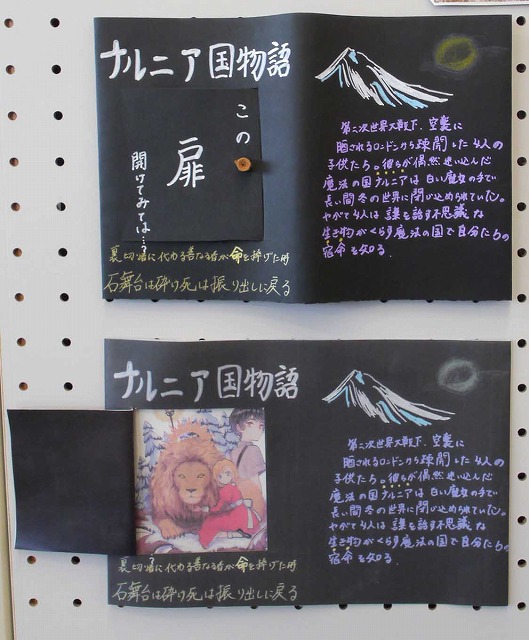 ナルニア国物語
この
扉
開けてみては…?
裏切り者に代わる善なる者が命を捧げた時
石舞台は砕け死は振り出しに戻る
第二次世界大戦下、空襲に
晒されるロンドンから疎開した4人の
子供たち。彼らが偶然迷い込んだ
魔法の国ナルニアは白い魔女の手で
長い間冬の世界に閉じ込められていた。
やがて4人は言葉を話す不思議な
生き物がくらす魔法の国で自分たちの
宿命を知る.
ナルニア国物語
裏切り者に代わる善なる者が命を捧げた時
石舞台は砕け死は振り出しに戻る
第二次世界大戦下、空襲に
晒されるロンドンから疎開した4人の
子供たち。彼らが偶然迷い込んだ
魔法の国ナルニアは白い魔女の手で
長い間冬の世界に閉じ込められていた。
やがて4人は言葉を話す不思議な
生き物がくらす魔法の国で自分たちの
宿命を知る.